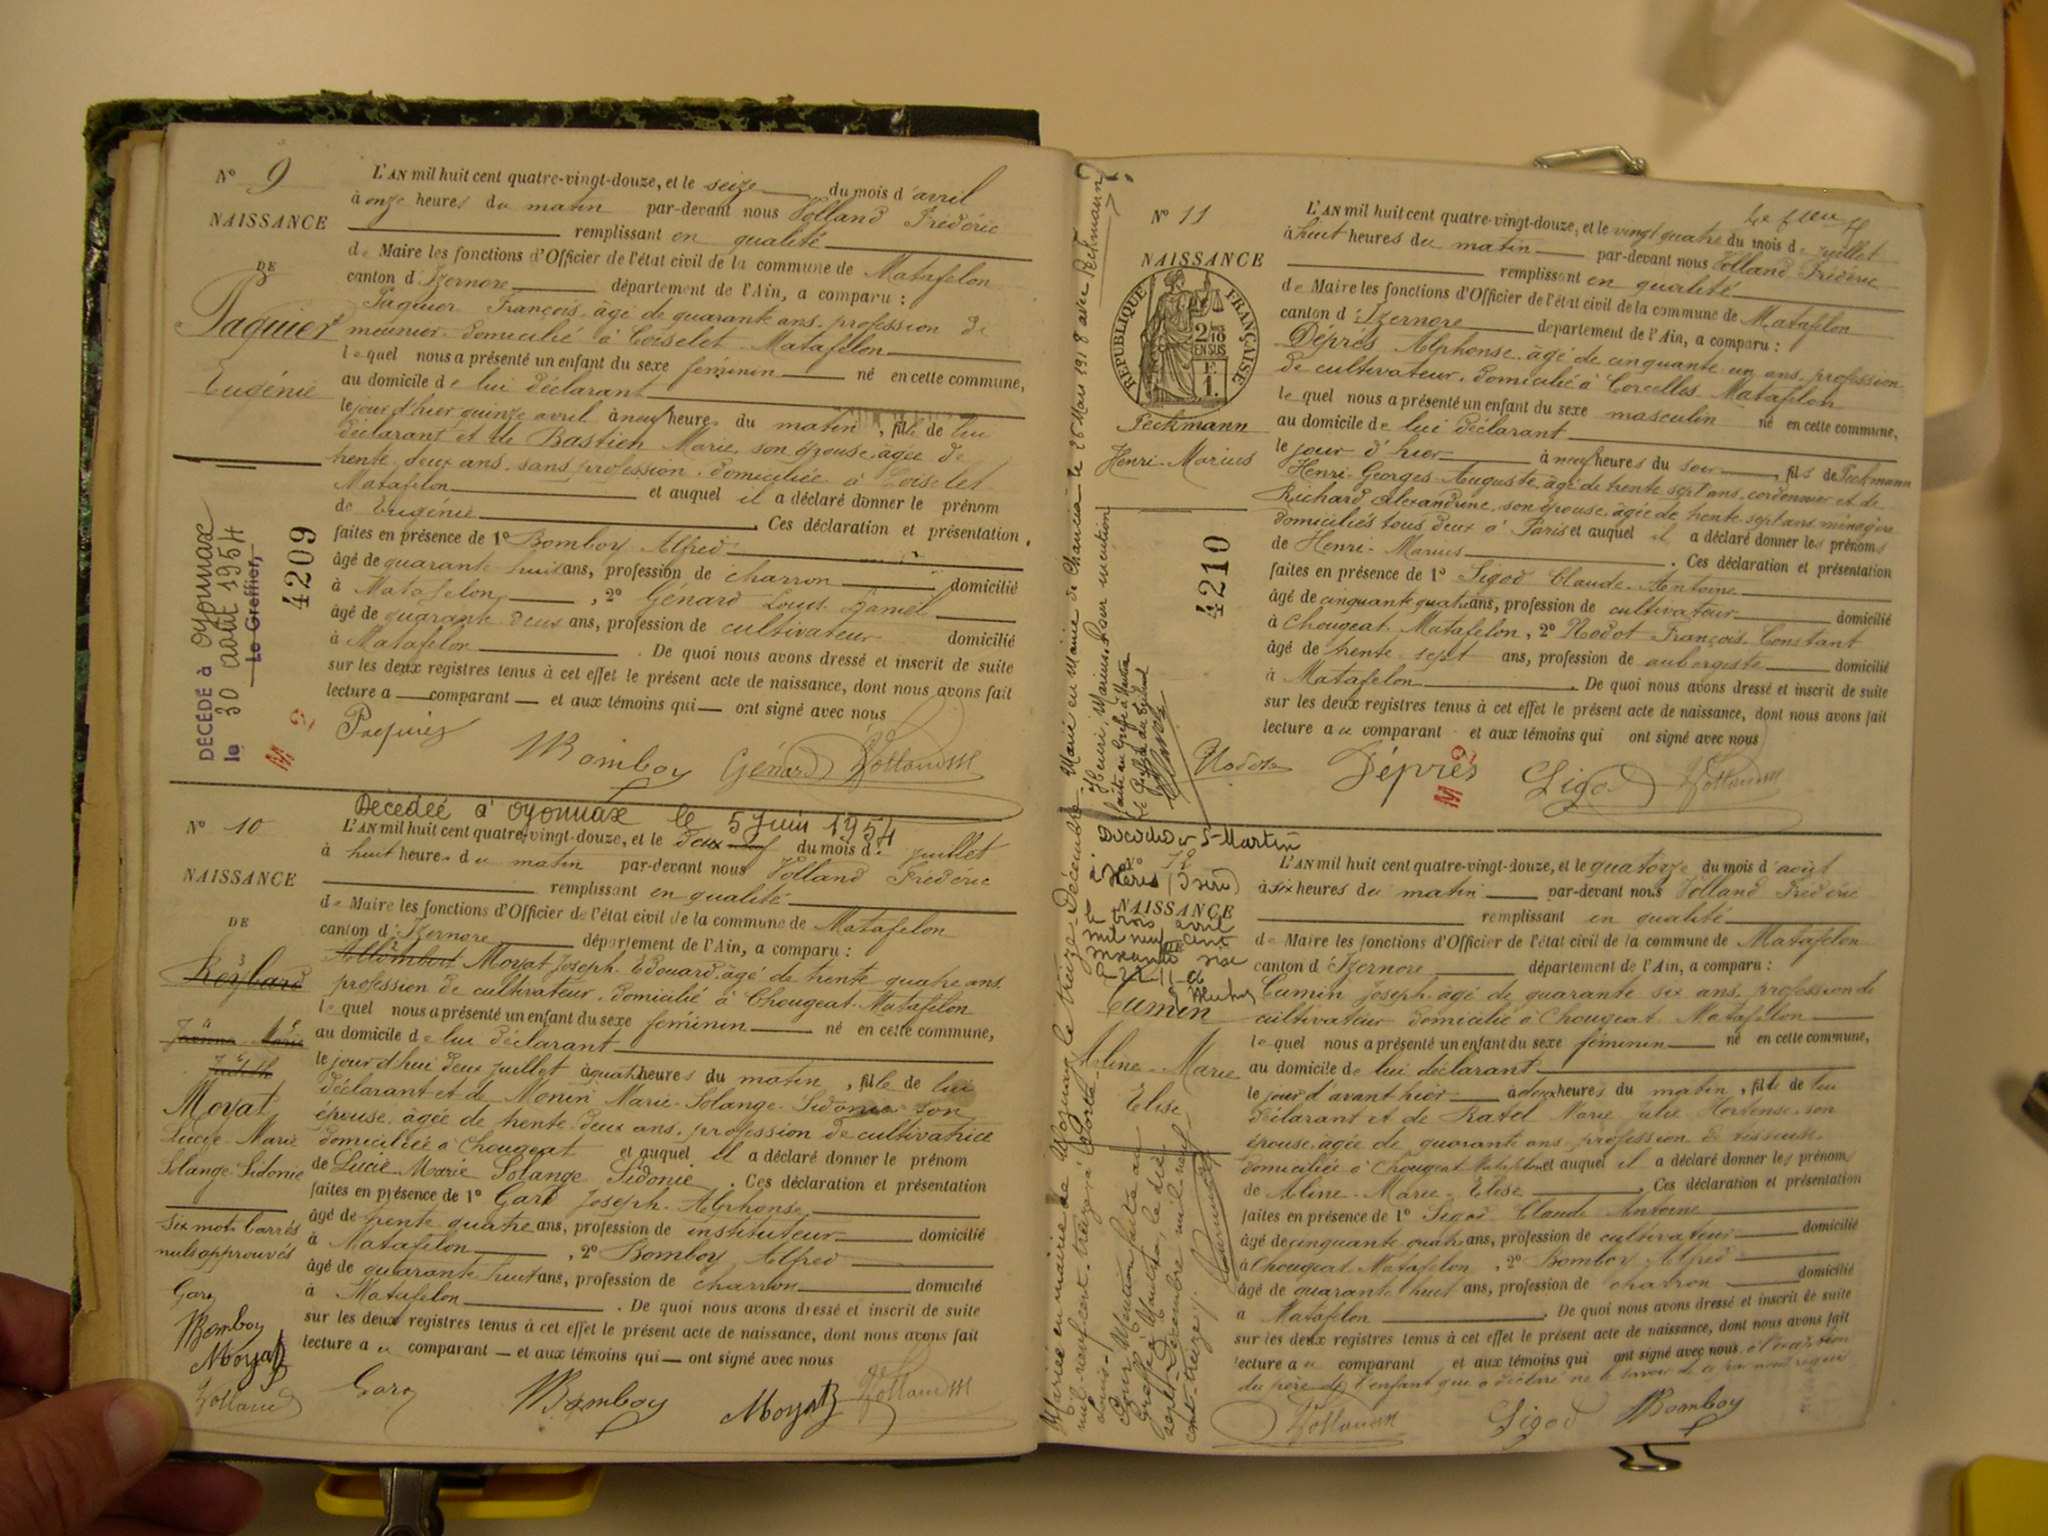 N° 9
NAISSANCE
DE
Paquier
Eugénie
DÉCÉDÉ à Oyonnax
le 30 août 1954
Le Greffier,
4209
L'AN mil huit cent quatre-vingt-douze, et le seize du mois d'avril
à onze heures du matin par-devant nous Volland Frédéric
remplissant en qualité
de Maire les fonctions d'Officier de l'état civil de la commune de Matafelon
canton d'Izernore département de l'Ain, a comparu :
Paquier François âgé de quarante ans, profession de
meunier domicilié à Coiselet Matafelon
lequel nous a présenté un enfant du sexe féminin né en cette commune,
au domicile de lui déclarant
le jour d'hier quinze avril à neuf heures du matin, fille de lui
déclarant et de Bastien Marie, son épouse, âgée de
trente deux ans, sans profession, domiciliée à Coiselet
Matafelon et auquel il a déclaré donner le prénom
de Eugénie. Ces déclaration et présentation
faites en présence de 1° Bomboy Alfred
âgé de quarante huit ans, profession de charron domicilié
à Matafelon, 2° Génard Louis Daniel
âgé de quarante deux ans, profession de cultivateur domicilié
à Matafelon. De quoi nous avons dressé et inscrit de suite
sur les deux registres tenus à cet effet le présent acte de naissance, dont nous avons fait
lecture a comparant et aux témoins qui ont signé avec nous
Bomboy Génard Volland
Décédée à Oyonnax le 5 Juin 1954
N° 10
NAISSANCE
DE
Reybard
Marie
Judith
Moyat
Lucie Marie
Solange Sidonie
Six mots barrés
nuls approuvés
Gard
Bomboy
Moyat
Volland
L'AN mil huit cent quatre-vingt-douze, et le deux du mois de juillet
à huit heures du matin par-devant nous Volland Frédéric
remplissant en qualité
de Maire les fonctions d'Officier de l'état civil de la commune de Matafelon
canton d'Izernore département de l'Ain, a comparu :
Allombert Moyat Joseph Edouard, âgé de trente quatre ans
profession de cultivateur, domicilié à Chougeat Matafelon
lequel nous a présenté un enfant du sexe féminin né en cette commune,
au domicile de lui déclarant
le jour d'hui deux juillet à quatre heures du matin, fille de lui
déclarant et de Monin Marie Solange Sidonie son
épouse, âgée de trente deux ans, profession de cultivatrice
domiciliée à Chougeat et auquel il a déclaré donner le prénom
de Lucie Marie Solange Sidonie. Ces déclaration et présentation
faites en présence de 1° Gard Joseph Alphonse
âgé de trente quatre ans, profession de instituteur domicilié
à Matafelon, 2° Bomboy Alfred
âgé de quarante huit ans, profession de charron domicilié
à Matafelon. De quoi nous avons dressé et inscrit de suite
sur les deux registres tenus à cet effet le présent acte de naissance, dont nous avons fait
lecture au comparant et aux témoins qui ont signé avec nous
Gard Bomboy Moyat Volland
N° 11
NAISSANCE
RÉPUBLIQUE FRANÇAISE
Peckmann
Henri-Marius
4210
Marié en Mairie de Chancia le 25 Mars 1918 avec
L'AN mil huit cent quatre-vingt-douze, et le vingt quatre du mois de juillet
à huit heures du matin par-devant nous Volland Frédéric
remplissant en qualité
de Maire les fonctions d'Officier de l'état civil de la commune de Matafelon
canton d'Izernore département de l'Ain, a comparu :
Déprés Alphonse, âgé de cinquante un ans, profession
de cultivateur, domicilié à Corcelles Matafelon
lequel nous a présenté un enfant du sexe masculin né en cette commune,
au domicile de lui déclarant
le jour d'hier à neuf heures du soir, fils de Peckmann
Henri Georges Auguste, âgé de trente sept ans, cordonnier et de
Richard Alexandrine, son épouse, âgée de trente sept ans, ménagère
domiciliés tous deux à Paris et auquel il a déclaré donner les prénoms
de Henri-Marius. Ces déclaration et présentation
faites en présence de 1° Sigod Claude Antoine
âgé de cinquante quatre ans, profession de cultivateur domicilié
à Chougeat Matafelon, 2° Nodot François Constant
âgé de trente sept ans, profession de aubergiste domicilié
à Matafelon. De quoi nous avons dressé et inscrit de suite
sur les deux registres tenus à cet effet le présent acte de naissance, dont nous avons fait
lecture au comparant et aux témoins qui ont signé avec nous
Nodot Déprés Sigod Volland
Décédée à St-Martin
d'Hères (Isère)
N° 12
NAISSANCE
DE
le trois avril
mil neuf cent
Cumin
Aline-Marie
Elise
Mariée en mairie de
L'AN mil huit cent quatre-vingt-douze, et le quatorze du mois d'août
à six heures du matin par-devant nous Volland Frédéric
remplissant en qualité
de Maire les fonctions d'Officier de l'état civil de la commune de Matafelon
canton d'Izernore département de l'Ain, a comparu :
Cumin Joseph, âgé de quarante six ans, profession de
cultivateur domicilié à Chougeat Matafelon
lequel nous a présenté un enfant du sexe féminin né en cette commune,
au domicile de lui déclarant
le jour d'avant hier à deux heures du matin, fille de lui
déclarant et de Ratel Marie Julie Hortense, son
épouse, âgée de quarante ans, profession de
domiciliée à Chougeat Matafelon et auquel il a déclaré donner les prénoms
de Aline-Marie-Elise. Ces déclaration et présentation
faites en présence de 1° Sigod Claude Antoine
âgé de cinquante quatre ans, profession de cultivateur domicilié
à Chougeat Matafelon, 2° Bomboy Alfred
âgé de quarante huit ans, profession de charron domicilié
à Matafelon. De quoi nous avons dressé et inscrit de suite
sur les deux registres tenus à cet effet le présent acte de naissance, dont nous avons fait
lecture au comparant et aux témoins qui ont signé avec nous à l'exception
du père de l'enfant qui a déclaré ne le savoir de ce par nous requis
Volland Sigod Bomboy